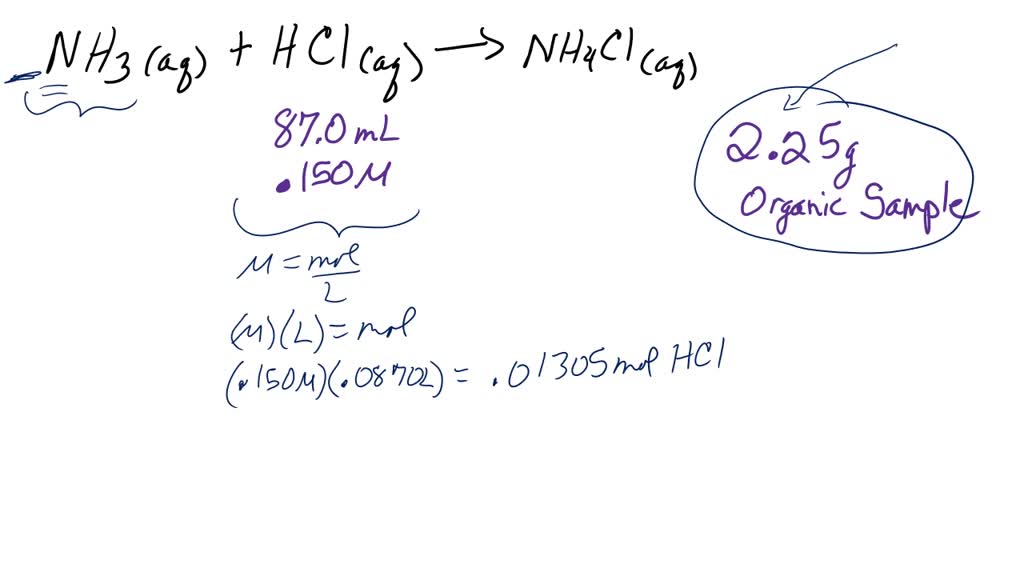 NH3(aq) + HCl(aq) → NH4Cl(aq)
87.0 mL
.150M
2.25g
Organic Sample
M = mol/L
(M)(L) = mol
(.150M)(.0870L) = .01305 mol HCl